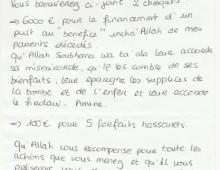 Vous trouverez ci-joint 2 chèques:
⇒ 6000 € pour le financement d'un
puit au "bénéfice" incha'Allah de mes
parents décédés
qu'Allah Soubhana wa ta'ala leur accorde
sa miséricorde, qu'Il les comble de ses
bienfaits, leur épargne les supplices de
la tombe et de l'enfer et leur accorde
le firdaws. Amine.
⇒ 100€ pour 5 forfaits hassanets.
Qu'Allah vous récompense pour toute les
actions que vous menez et qu'il vous